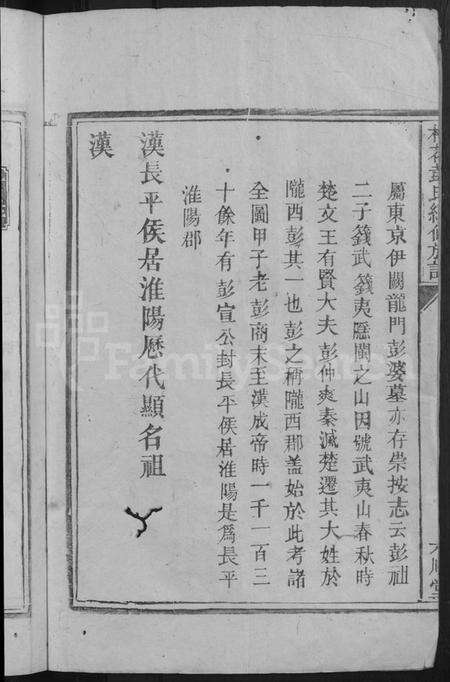 屬東京伊闕龍門彭婆墓亦存崇按志云彭祖
二子籛武籛夷隱閩之山因號武夷山春秋時
楚文王有賢大夫彭仲爽秦滅楚遷其大姓於
隴西彭其一也彭之稱隴西郡蓋始於此考諸
全圖甲子老彭商末至漢成帝時一千一百三
十餘年有彭宣公封長平侯居淮陽是爲長平
淮陽郡
漢長平侯居淮陽歷代顯名祖
漢
FamilySearch